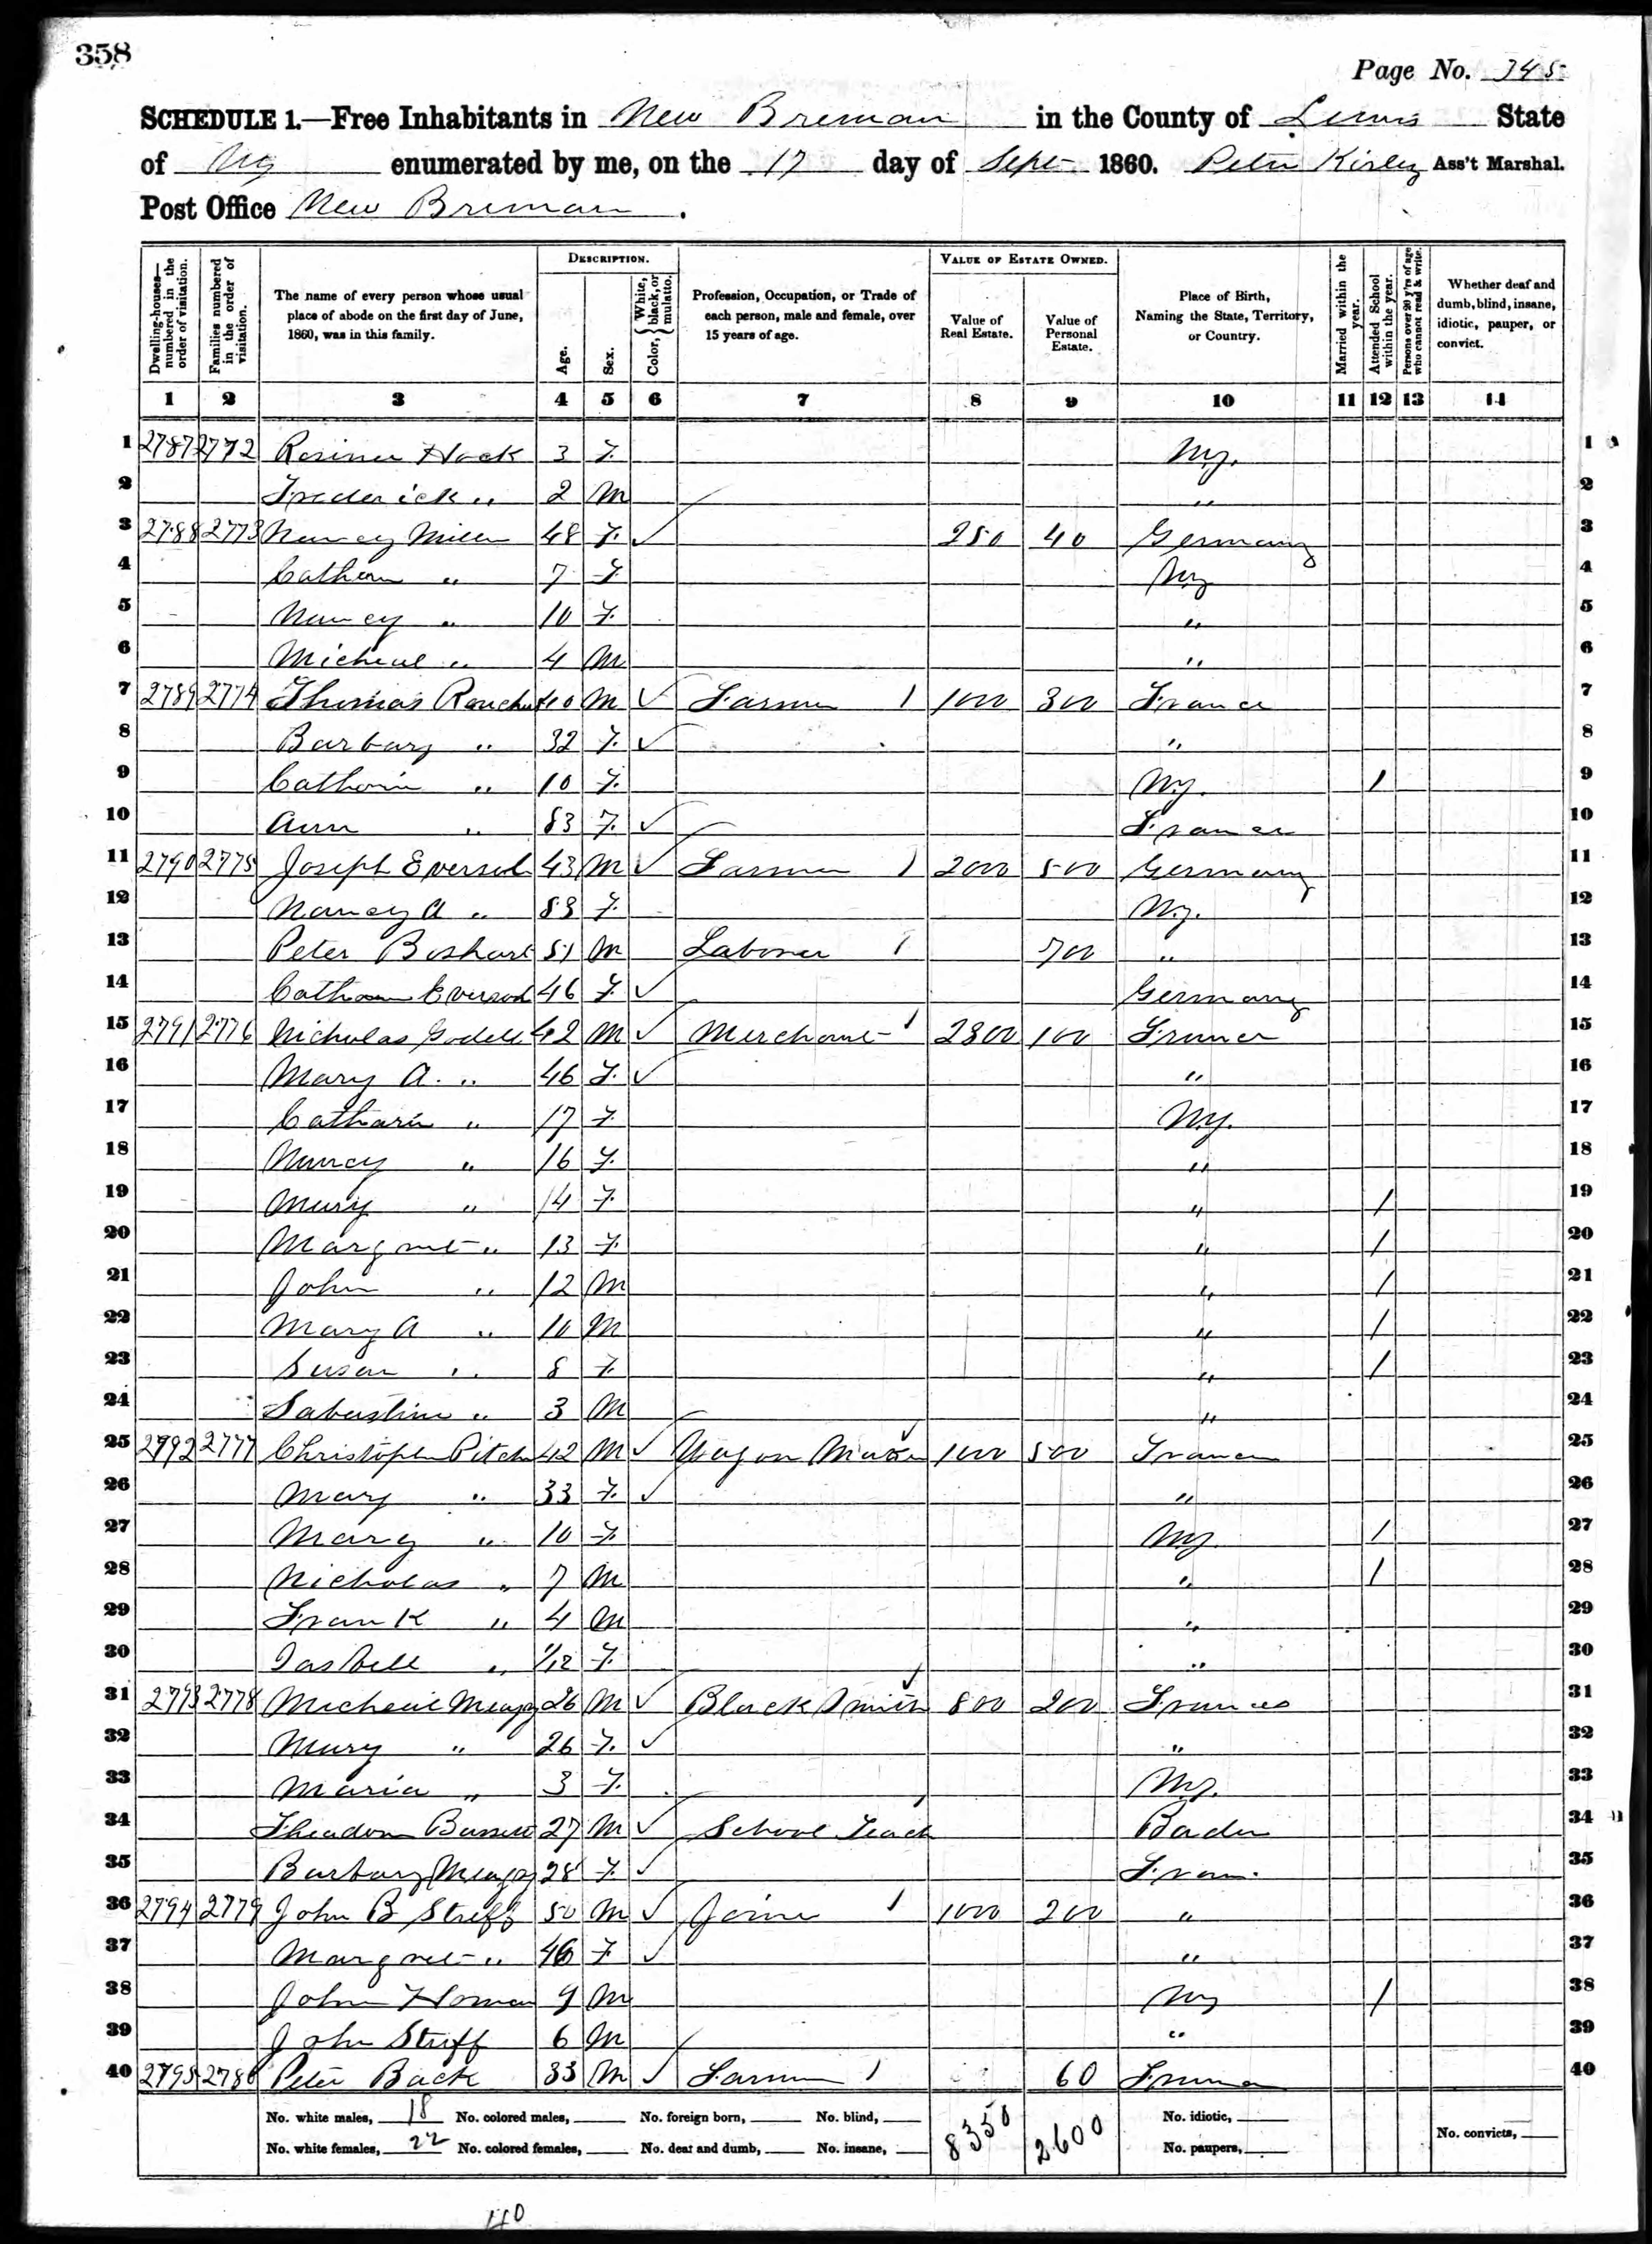 358
Page No. 345
SCHEDULE 1.—Free Inhabitants in New Breman in the County of Lewis State
of Ny enumerated by me, on the 17 day of Sept 1860. Peter Kirley Ass't Marshal.
Post Office New Breman.
Dwelling-houses—numbered in the order of visitation.
Families numbered in the order of visitation.
The name of every person whose usual place of abode on the first day of June, 1860, was in this family.
DESCRIPTION.
Age.
Sex.
Color, { White, black, or mulatto.
Profession, Occupation, or Trade of each person, male and female, over 15 years of age.
VALUE OF ESTATE OWNED.
Value of Real Estate.
Value of Personal Estate.
Place of Birth, Naming the State, Territory, or Country.
Married within the year.
Attended School within the year.
Persons over 20 y'rs of age who cannot read & write.
Whether deaf and dumb, blind, insane, idiotic, pauper, or convict.
1 2 3 4 5 6 7 8 9 10 11 12 13 14
1 2787 2772 Rosinna Hock 3 F. Ny. 1
2 Frederick " 2 M " 2
3 2788 2773 Nancy Miller 48 F. ✓ 250 40 Germany 3
4 Cathern " 7 F Ny 4
5 Nancy " 10 F. " 5
6 Micheal " 4 M " 6
7 2789 2774 Thomas 40 M ✓ Farmer 1 1000 300 France 7
8 Barbary " 32 F. ✓ " 8
9 Catharin " 10 F. Ny. / 9
10 Ann " 83 F. ✓ France 10
11 2790 2775 Joseph Eversol 43 M ✓ Farmer 1 2000 500 Germany 11
12 Nancy A " 83 F. Ny. 12
13 Peter Boshart 51 M Laborer 1 700 " 13
14 Eversod 46 F. ✓ Germany 14
15 2791 2776 Nicholas Godell 42 M ✓ Merchant 1 2300 100 France 15
16 Mary A. " 46 F. ✓ " 16
17 Catharin " 17 F Ny. 17
18 Nancy " 16 F. " 18
19 Mary " 14 F. " / 19
20 Margret " 13 F. " / 20
21 John " 12 M " / 21
22 Mary A " 10 M " / 22
23 Susan " 8 F. " / 23
24 Sabastine " 3 M " 24
25 2792 2777 Christophe Pitcher 42 M ✓ Wagon Maker 1000 500 France 25
26 Mary " 33 F. ✓ " 26
27 Mary " 10 F. Ny. / 27
28 Nicholas " 7 M " / 28
29 Frank " 4 M " 29
30 Iasbell " 1/12 F. " 30
31 2793 2778 Micheal 26 M ✓ Black Smith 800 200 France 31
32 Mary " 26 F. ✓ " 32
33 Maria " 3 F. Ny. 33
34 Theadore 27 M ✓ School Teach Baden 34
35 Barbary 28 F. ✓ Fran. 35
36 2794 2779 John B Streff 50 M ✓ Joiner 1 1000 200 " 36
37 Margret " 46 F ✓ " 37
38 John 9 M Ny / 38
39 John Streff 6 M " 39
40 2795 2780 Peter Back 33 M ✓ Farmer 1 60 France 40
No. white males, 18 No. colored males, No. foreign born, No. blind, 8350 2600 No. idiotic,
No. white females, 22 No. colored females, No. deaf and dumb, No. insane, No. paupers, No. convicts,
40